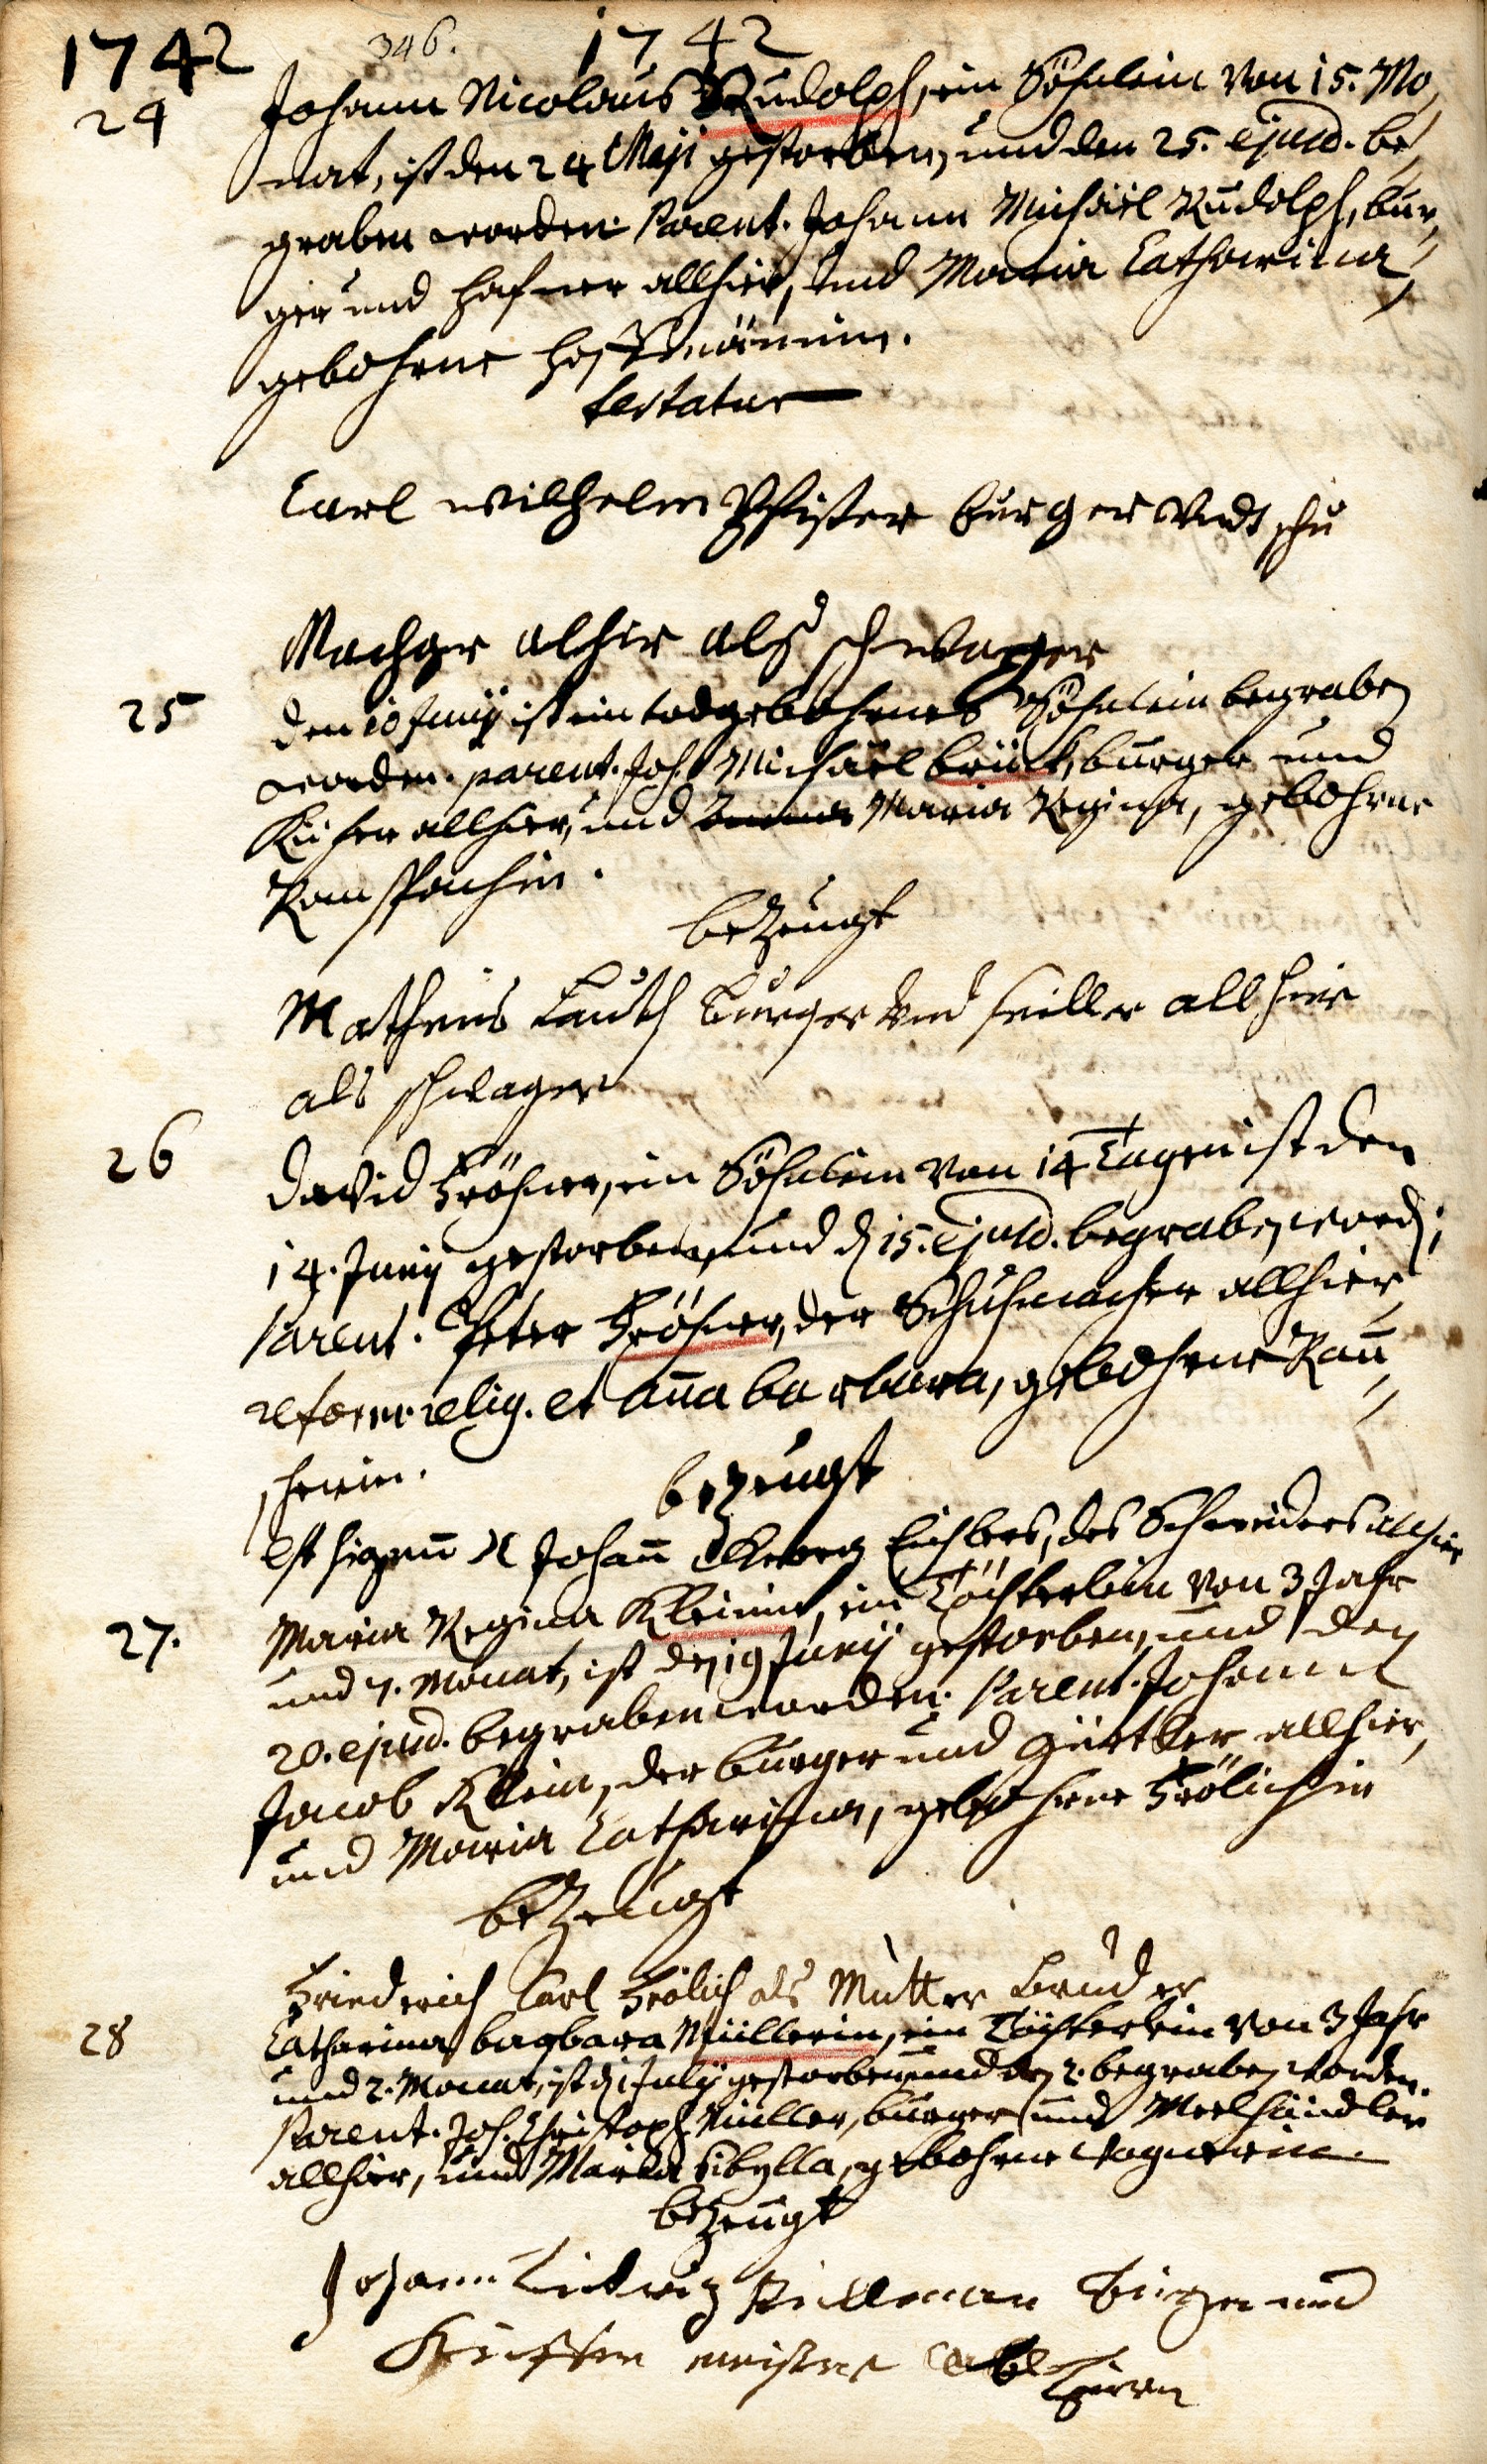 1742 346. 1742
24 Johann Nicolaus Rudolph, ein Söhnlein von 15. Mo,
nat, ist den 24 Maji gestorben, und den 25. ejusd. be,
graben worden. Parent. Johann Michael Rudolph, bur,
ger und Hafner allhier, und Maria Catharina,
gebohrne
testatur
Carl Wilhelm Pfister burger Undt schu
Machger alhir alß schwager
25 den 10 Junij ist ein todgebohrnes Söhnlein begraben
worden. parent. Joh. Michael brück, burger und
Küfer allhier, und Maria Regina, gebohrne
Ramspachin.
bezeugt
Matheus Lauth burger und seiller allhier
als schwager
26 David Fröhner, ein Söhnlein von 14 Tagen ist den
14. Junij gestorben, und d. 15. ejusd. begraben word.;
Parent. Peter Fröhner, der Schuhmacher allhier
reform. relig. et Anna barbara, gebohrne Rau,
scherin.
bezeugt
Est signum X Johann Georg des Schneiders allhier
27. Maria Regina Kleinin, ein Töchterlein von 3 Jahr
und 7. Monat, ist den 19 Junij gestorben, und den
20. ejusd. begraben worden. Parent. Johann
Jacob Klein, der burger und Gürtler allhier,
und Maria Catharina, gebohrne Frölichin
bezeugt
Friederich Carl Frölich als Mutter Bruder
28 Catharina barbara Müllerin, ein Töchterlein von 3 Jahr
und 2. Monat, ist d. 1 Julij gestorben, und den 2. begraben worden.
Parent. Joh. Christoph Müller, burger und Meelhändler
allhier, und Maria Sibylla, gebohrne Wagnerin.
bezeugt
Johann Ludwig burger und
meister